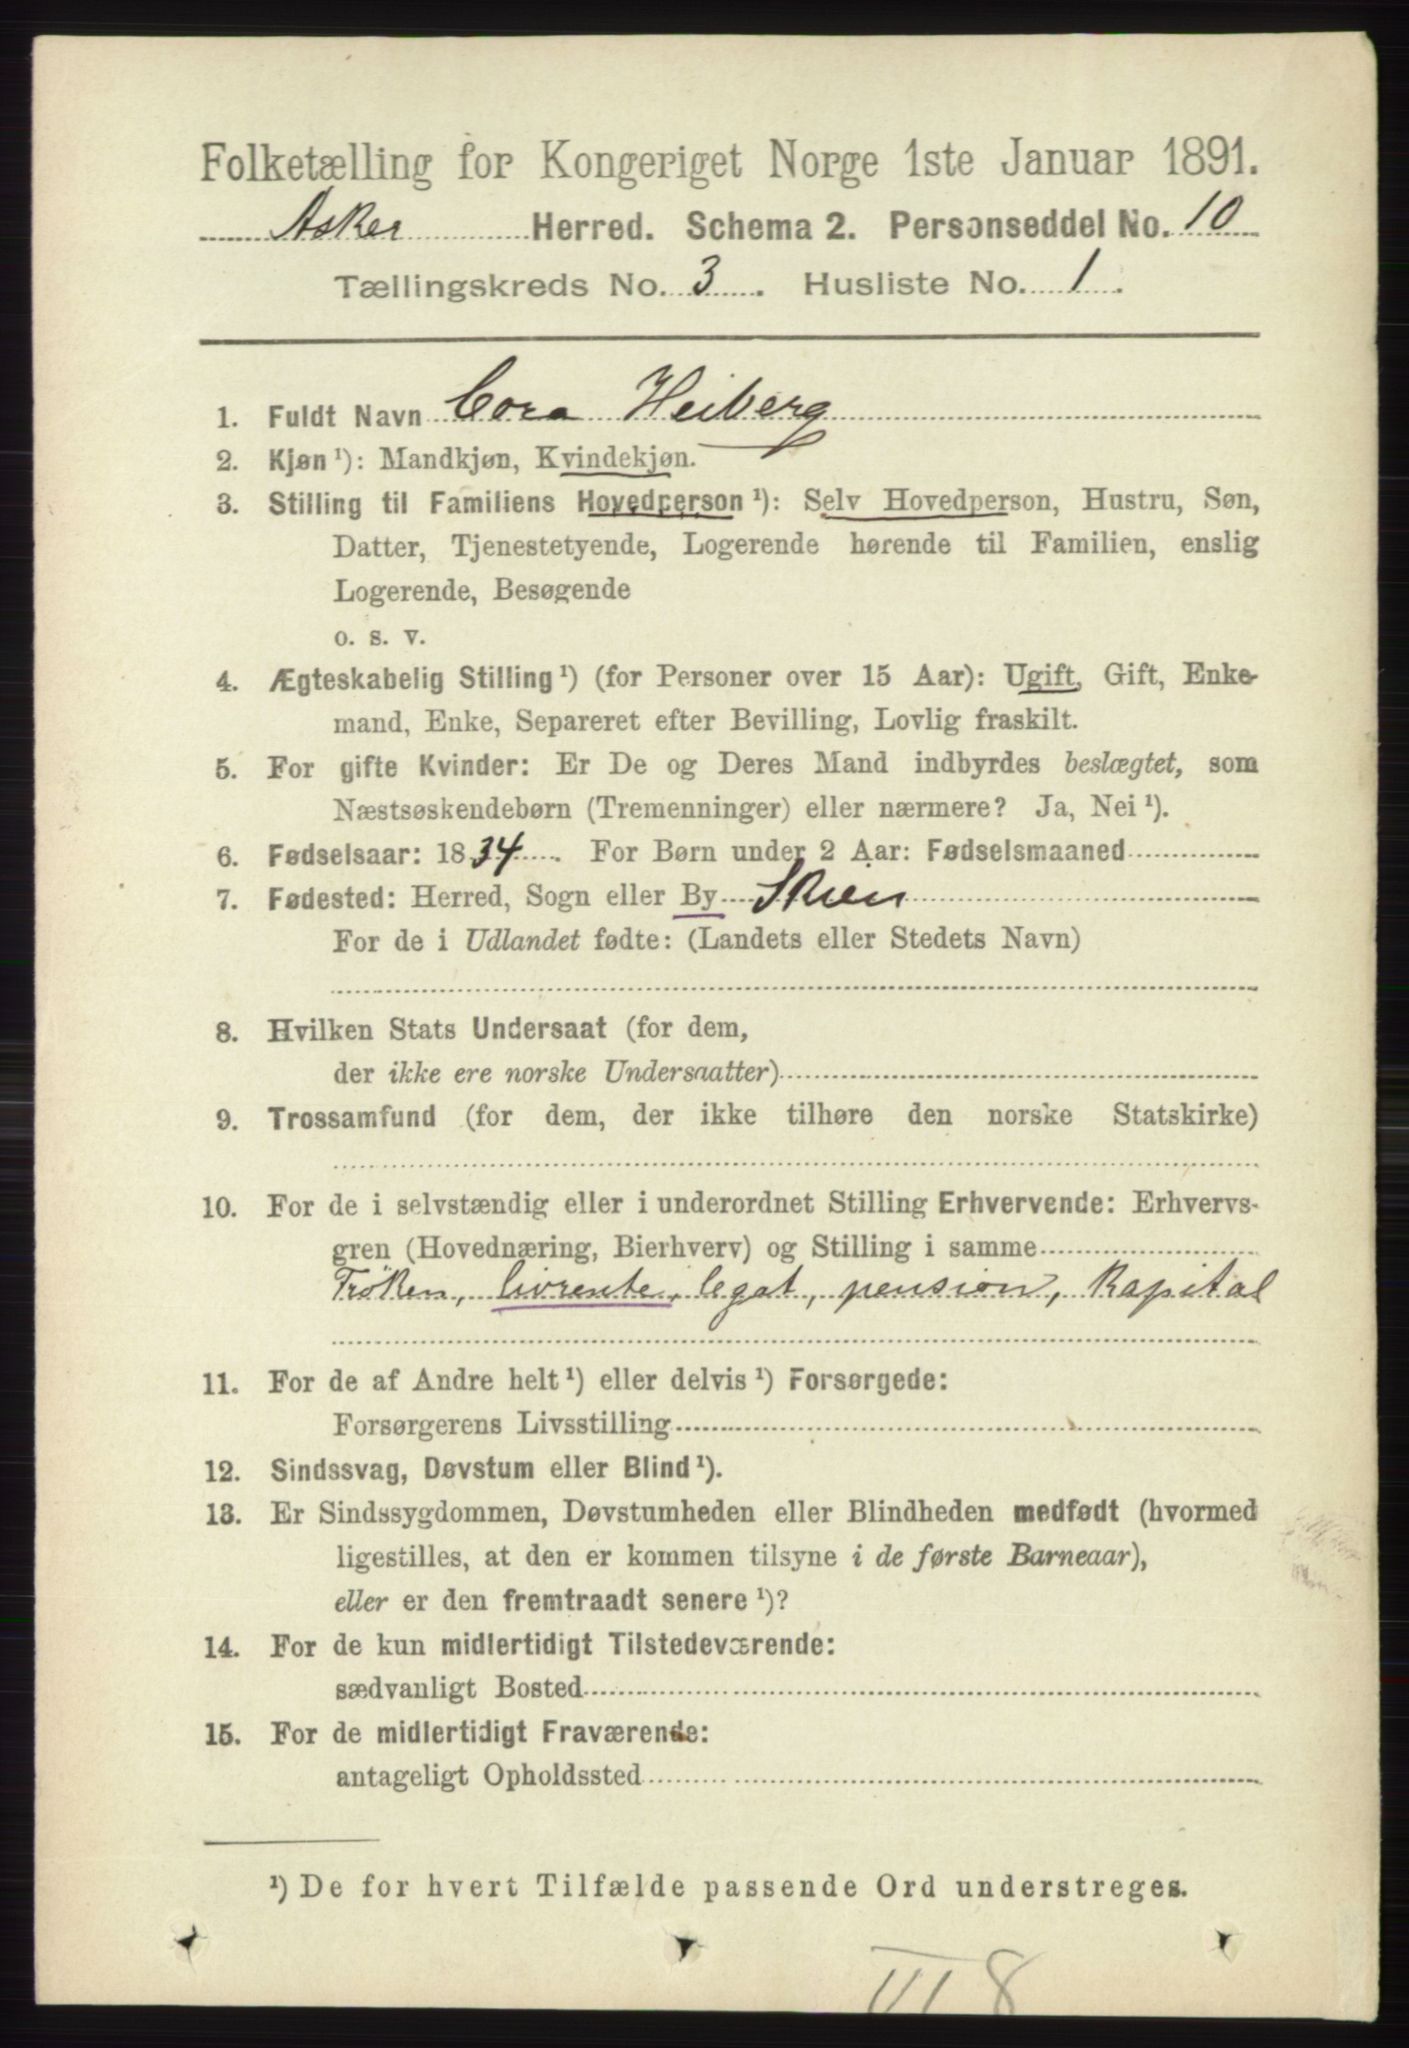 Folketælling for Kongeriget Norge 1ste Januar 1891.
Asker Herred. Schema 2. Personseddel No. 10
Tællingskreds No. 3. Husliste No. 1.
1. Fuldt Navn Cora Heiberg
2. Kjøn ¹): Mandkjøn, Kvindekjøn.
3. Stilling til Familiens Hovedperson ¹): Selv Hovedperson, Hustru, Søn,
Datter, Tjenestetyende, Logerende hørende til Familien, enslig
Logerende, Besøgende
o. s. v.
4. Ægteskabelig Stilling ¹) (for Personer over 15 Aar): Ugift, Gift, Enke-
mand, Enke, Separeret efter Bevilling, Lovlig fraskilt.
5. For gifte Kvinder: Er De og Deres Mand indbyrdes beslægtet, som
Næstsøskendebørn (Tremenninger) eller nærmere? Ja, Nei ¹).
6. Fødselsaar: 1834. For Børn under 2 Aar: Fødselsmaaned
7. Fødested: Herred, Sogn eller By Skien
For de i Udlandet fødte: (Landets eller Stedets Navn)
8. Hvilken Stats Undersaat (for dem,
der ikke ere norske Undersaatter)
9. Trossamfund (for dem, der ikke tilhøre den norske Statskirke)
10. For de i selvstændig eller i underordnet Stilling Erhvervende: Erhvervs-
gren (Hovednæring, Bierhverv) og Stilling i samme
Fröken, livrente, legat, pension, Kapital
11. For de af Andre helt ¹) eller delvis ¹) Forsørgede:
Forsørgerens Livsstilling
12. Sindssvag, Døvstum eller Blind ¹).
13. Er Sindssygdommen, Døvstumheden eller Blindheden medfødt (hvormed
ligestilles, at den er kommen tilsyne i de første Barneaar),
eller er den fremtraadt senere ¹)?
14. For de kun midlertidigt Tilstedeværende:
sædvanligt Bosted
15. For de midlertidigt Fraværende:
antageligt Opholdssted
¹) De for hvert Tilfælde passende Ord understreges.
III 8